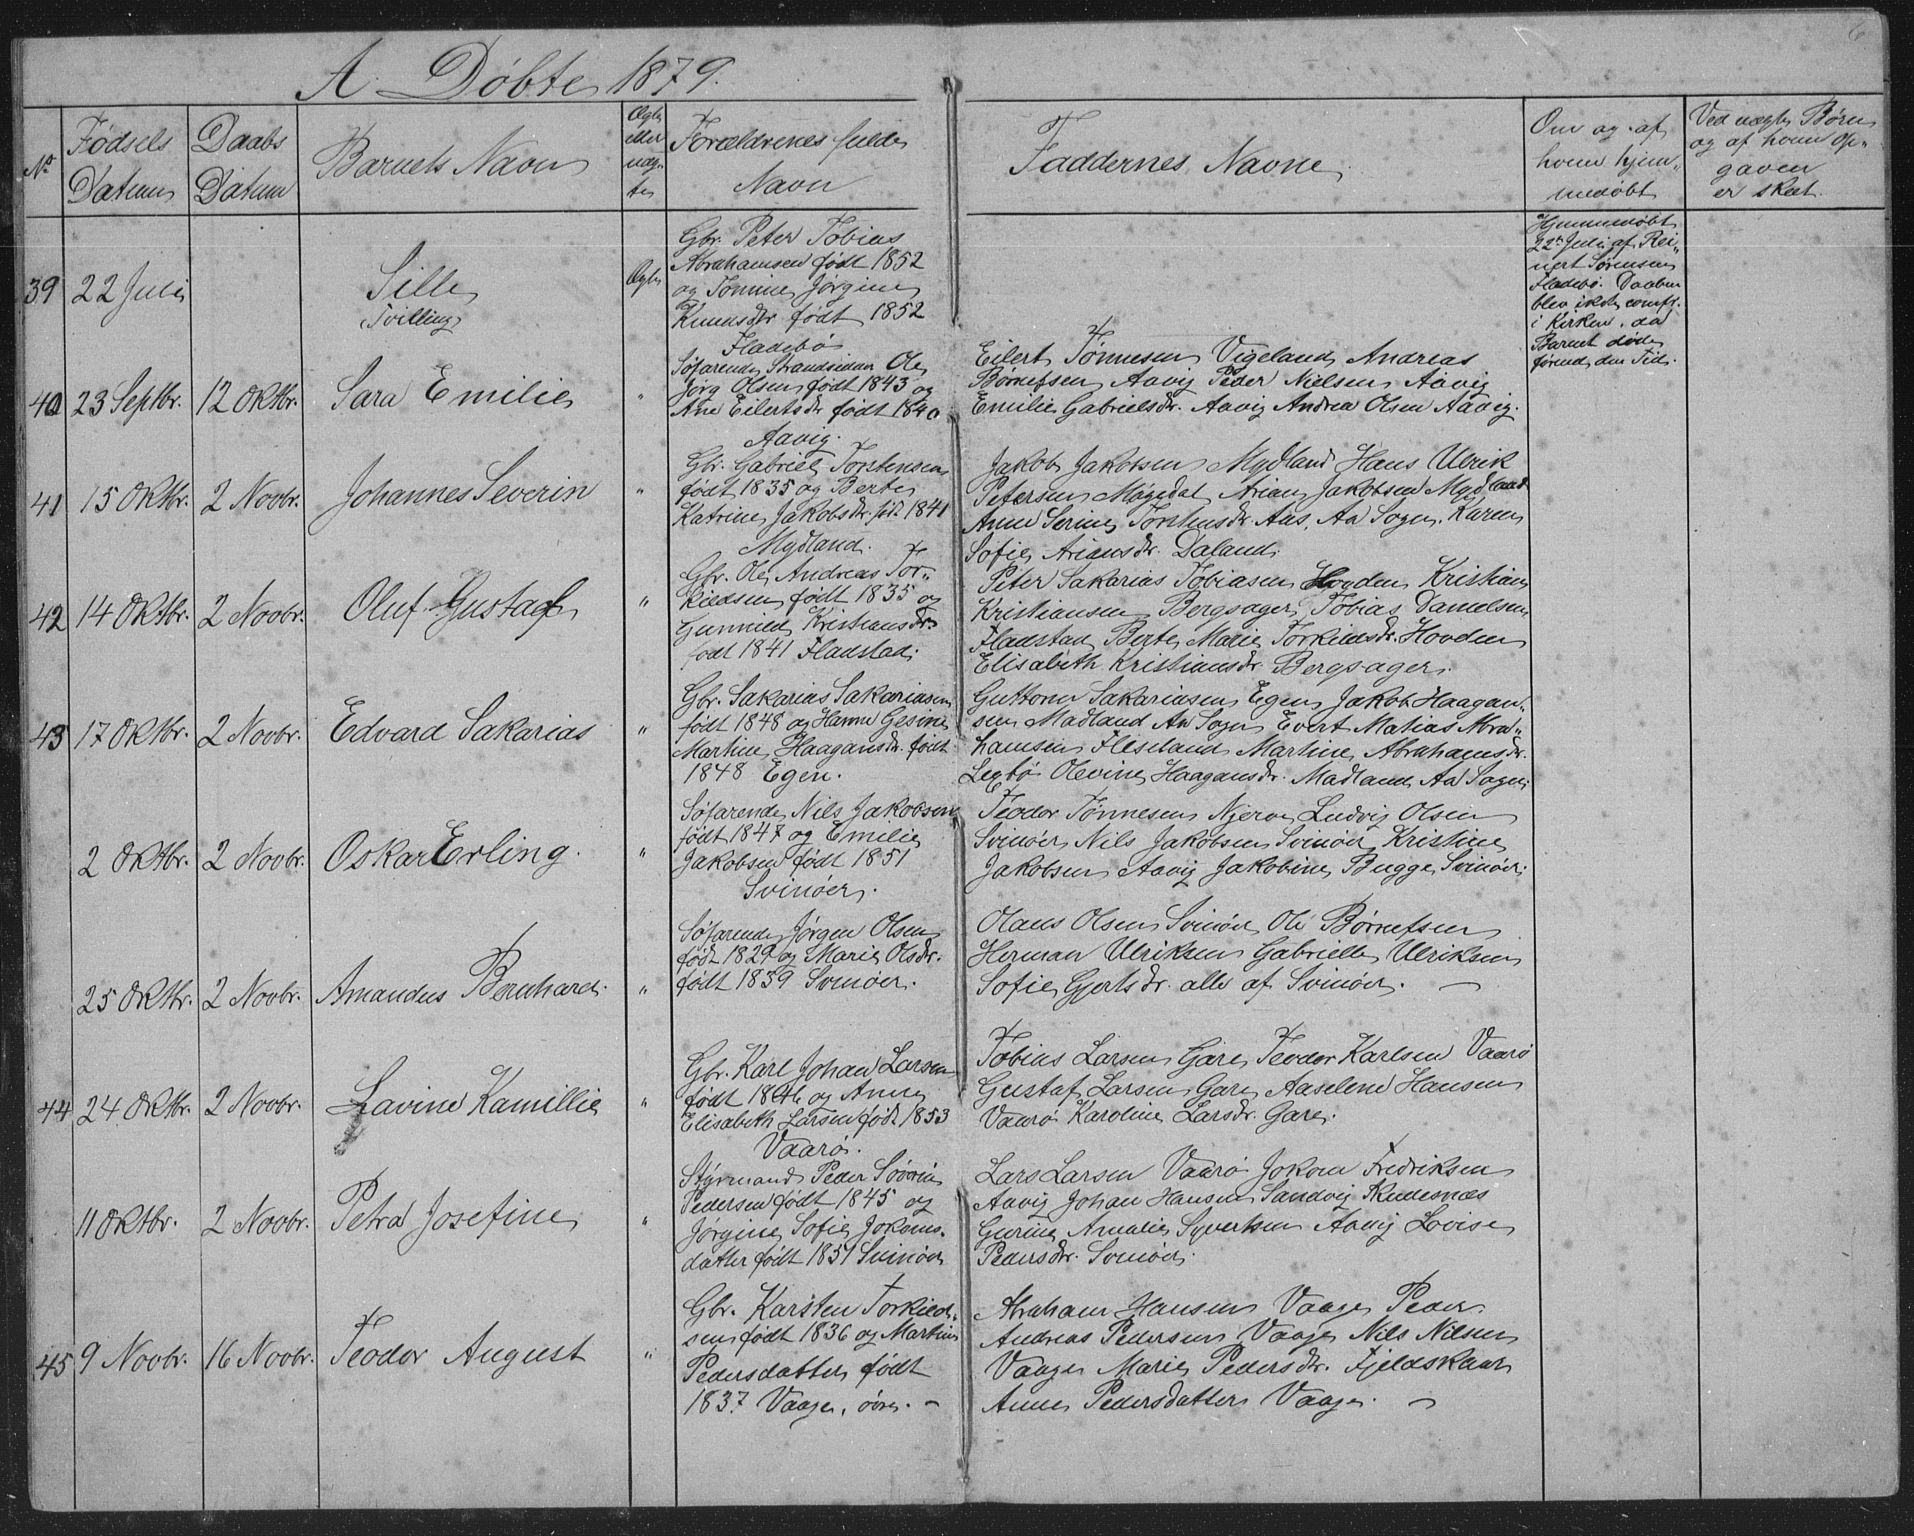 6
A. Døbte 1879.
No
Fødsels Datum
Daabs Datum
Barnets Navn
Ægte eller uægte
Forældrenes fulde Navn
Faddernes Navne
Om og af hvem hjemmedøbt
Ved uægte Børn og af hvem Opgaven er skeet.
39 22 Juli
Sille
(Tvilling)
Ægte
Gbr. Peter Tobias
Abrahamsen født 1852
og Tomine Jørgine
Knudsdr. født 1852
Fladebø
Hjemmedøbt
22de Juli af Rei„
nert Sørensen
Fladebø. Daaben
blev ikke comfr.
i Kirken, da
Barnet døde
førend den Tid.
40 23 Septbr. 12 Oktbr. Sara Emilie "
Søfarende Strandsidder Ole
Jørg Olsen født 1843 og
Ane Eilertsdr. født 1840
Aavig.
Eilert Tønnesen Vigeland Andreas
Børnefsen Aavig Peder Nielsen Aavig
Emilie Gabrielsdr. Aavig Andrea Olsen Aavig.
41 15 Oktbr. 2 Novbr. Johannes Severin "
Gbr. Gabriel Torstensen
født 1835 og Berte
Katrine Jakobsdr. født 1841
Mydland.
Jakob Jakobsen Mydland Hans Ulrik
Petersen Møgedal Arian Jakobsen Mydland
Anne Serine Torstensdr. Aas, Aa Sogn, Karen
Sofie Ariansdr. Daland.
42 14 Oktbr. 2 Novbr. Oluf Gustaf "
Gbr. Ole Andreas Tor„
kildsen født 1835 og
Gunnild Kristiansdr.
født 1841 Fladstad.
Peter Sakarias Tobiasen Hovden Kristian
Kristiansen Bergsager, Tobias Danielsen
Fladstad Berte Marie Torkildsdr. Hovden
Elisabeth Kristiansdr. Bergsager.
43 17 Oktbr. 2 Novbr. Edvard Sakarias "
Gbr. Sakarias Sakariasen
født 1848 og Hanne Gesine
Martine Haagansdr. født
1848 Egen.
Guttorm Sakariasen Egen, Jakob Haagan„
sen Madland Aa Sogn Evert Matias Abra„
hamsen Fleseland Martine Abrahamsdr.
Legbø Olevine Haagansdr. Madland Aa Sogn.
2 Oktbr. 2 Novbr. Oskar Erling. "
Søfarende Nils Jakobsen
født 1847 og Emilie
Jakobsen født 1851
Svinøer.
Teodor Tønnesen Njerve Ludvig Olsen
Svinøer Nils Jakobsen Svinøer Kristine
Jakobsen Aavig Jakobine Bugge Svinøer.
25 Oktbr. 2 Novbr. Amandus Bernhard. "
Søfarende Jørgen Olsen
født 1829 og Marie Olsdr.
født 1839 Svinøer.
Olaus Olsen Svinøer Ole Børnefsen
Herman Ulriksen Gabrielle Ulriksen
Sofie Gjertsdr. alle af Svinøer. —
44 24 Oktbr. 2 Novbr. Lavine Kamillie "
Gbr. Karl Johan Larsen
født 1846 og Anne
Elisabeth Larsen født 1853
Vaarø.
Tobias Larsen Gare Teodor Karlsen Vaarø
Gustaf Larsen Gare Aaselene Hansen
Vaarø Karoline Larsdr. Gare.
11 Oktbr. 2 Novbr. Petra Josefine "
Styrmand Peder Søvrin
Pedersen født 1845 og
Jørgine Sofie Jokums„
datter født 1851 Svinøer
Lars Larsen Vaarø Jokum Fredriksen
Aavig Johan Hansen Sandvig Skudesnæs
Gurine Amalie Syvertsen Aavig Lovise
Pedersdr. Svinøer.
45 9 Novbr. 16 Novbr. Teodor August "
Gbr. Karsten Torkild„
sen født 1836 og Martine
Pedersdatter født
1837 Vaage, øvre. —
Abraham Hansen Vaage Peder
Andreas Pedersen Vaage Nils Nilsen
Vaage Marie Pedersdr. Fjeldskaar
Anne Pedersdatter Vaage. —